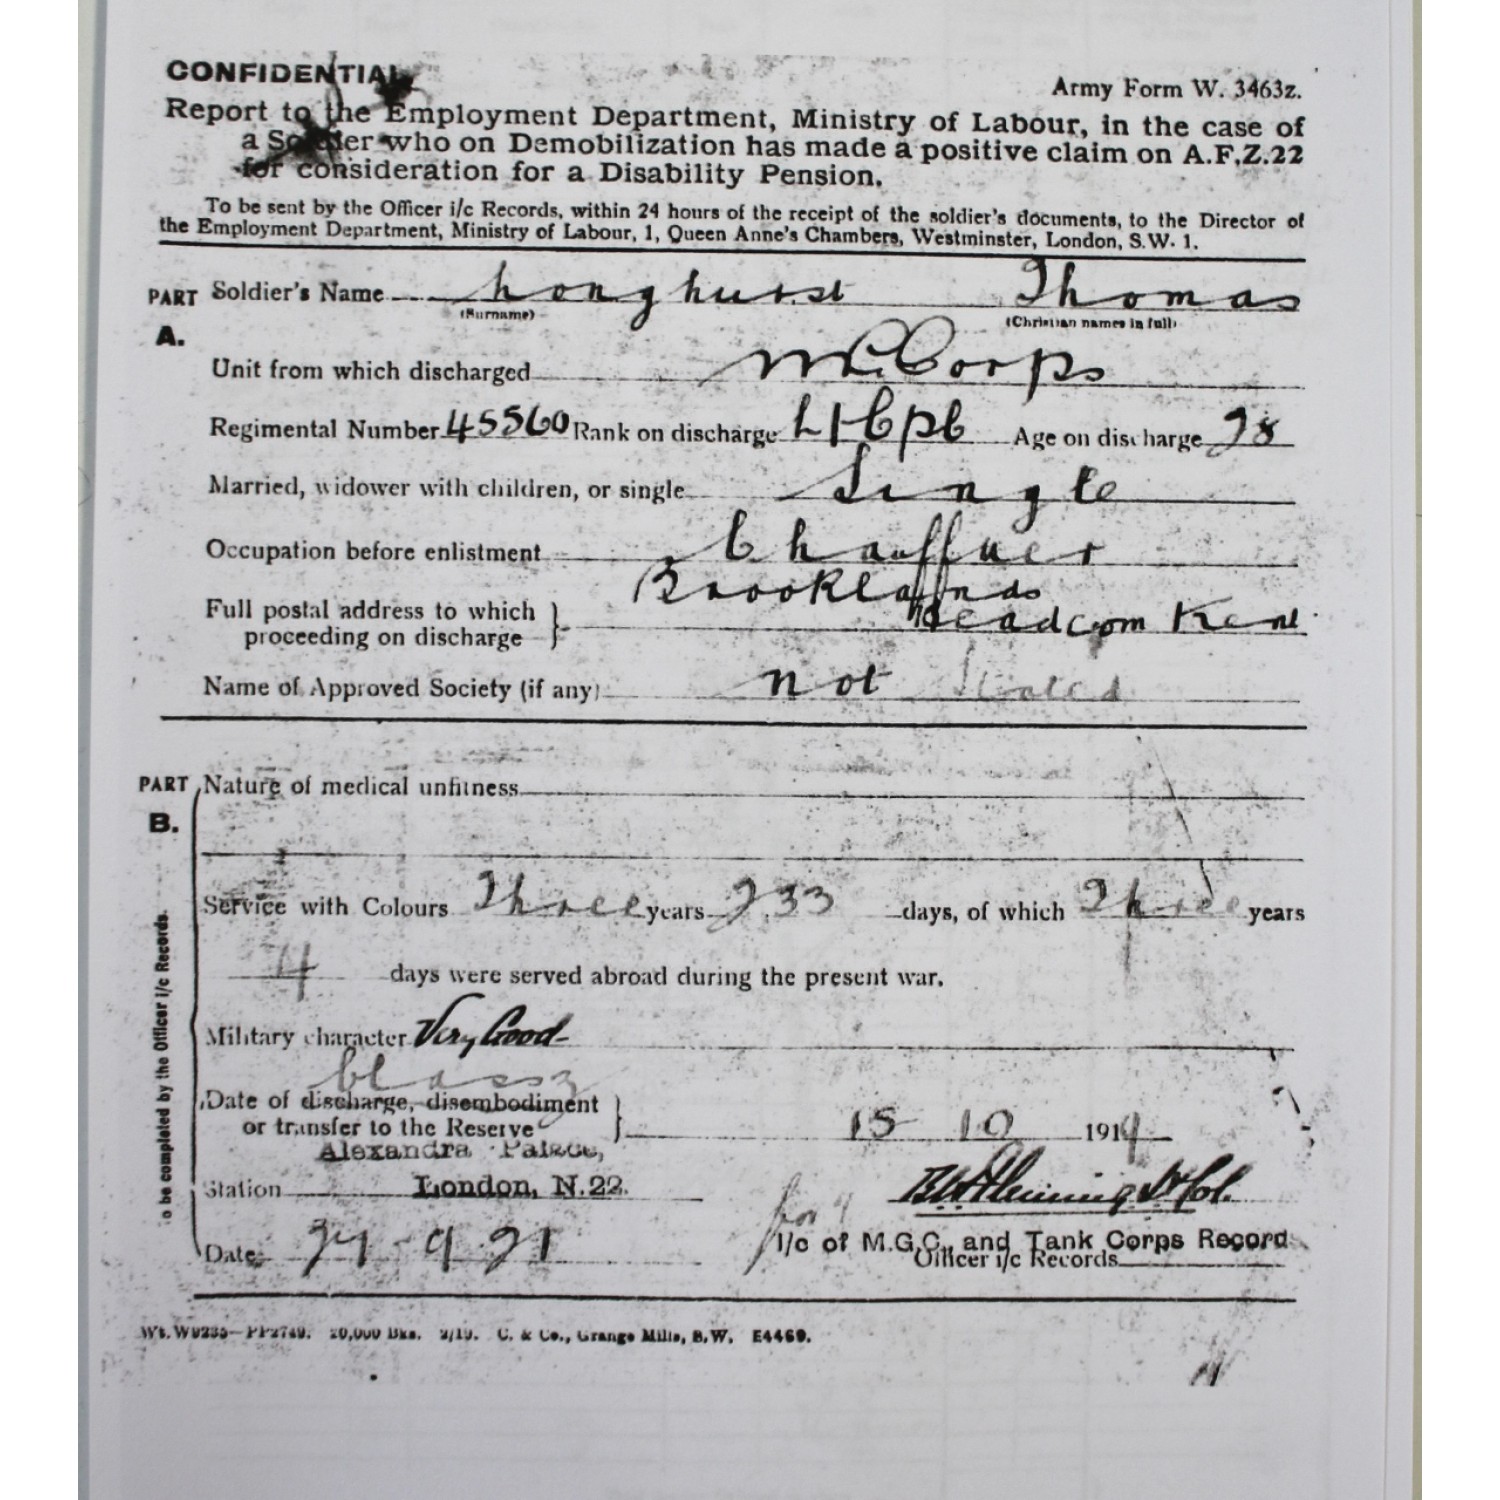 CONFIDENTIAL
Army Form W. 3463z.
Report to the Employment Department, Ministry of Labour, in the case of
a Soldier who on Demobilization has made a positive claim on A.F.Z.22
for consideration for a Disability Pension.
To be sent by the Officer i/c Records, within 24 hours of the receipt of the soldier's documents, to the Director of
the Employment Department, Ministry of Labour, 1, Queen Anne's Chambers, Westminster, London, S.W. 1.
PART A.
Soldier's Name Longhurst Thomas
(Surname) (Christian names in full)
Unit from which discharged Corps
Regimental Number 45560 Rank on discharge Age on discharge 28
Married, widower with children, or single Single
Occupation before enlistment Chauffuer
Brooklands
Full postal address to which Headcorn Kent
proceeding on discharge
Name of Approved Society (if any) not Stated
PART B.
Nature of medical unfitness
Service with Colours Three years 233 days, of which Three years
4 days were served abroad during the present war.
Military character Very Good
Class Z
Date of discharge, disembodiment
or transfer to the Reserve 15 10 1919
Alexandra Palace,
Station London, N.22.
for
Date
I/c of M.G.C. and Tank Corps Record
Officer i/c Records
To be completed by the Officer i/c Records.
Wt. W9235—PP2749. 20,000 Bks. 2/19. C. & Co., Grange Mills, S.W. E4469.